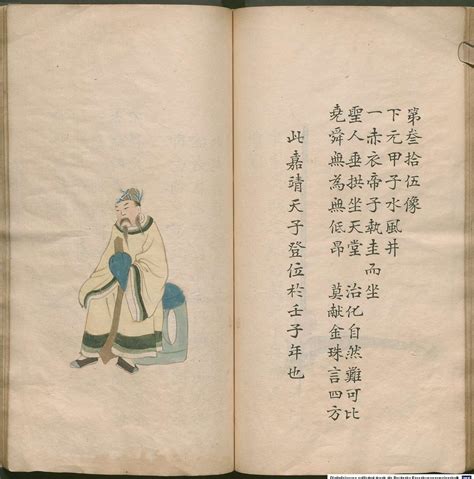 第叁拾伍像
下元甲子水風井
一赤衣帝子執圭而坐
聖人垂拱坐天堂　治化自然難可比
堯舜無為無低昂　莫献金珠言四方
此嘉靖天子登位於壬子年也